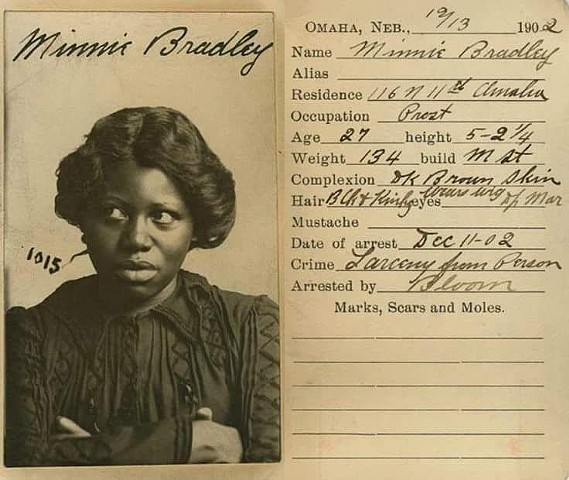 Minnie Bradley
1015
OMAHA, NEB., 12/13 1902
Name Minnie Bradley
Alias
Residence 116 N 11th Omaha
Occupation Prost
Age 27 height 5-2 1/4
Weight 134 build M St
Complexion Dk Brown Skin
Hair Blk & Kinky wears wig eyes Dk Mar
Mustache
Date of arrest Dec 11-02
Crime Larceny from Person
Arrested by Bloom
Marks, Scars and Moles.